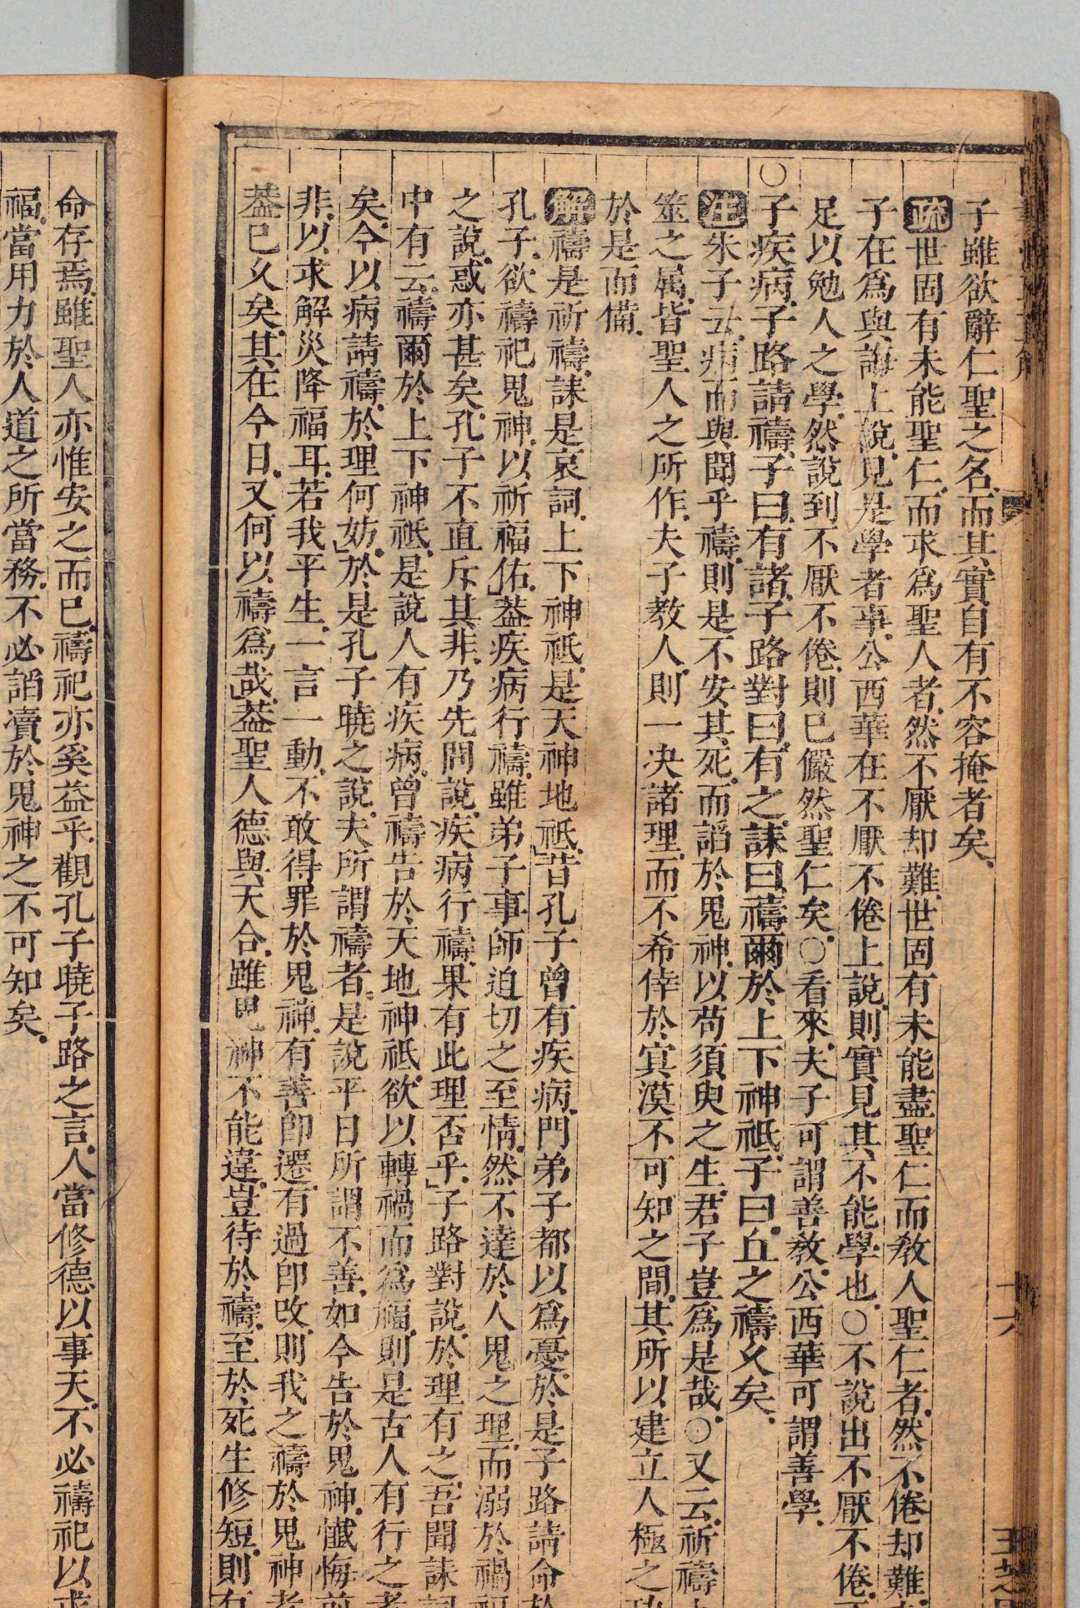 子雖欲辭仁聖之名而其實自有不容掩者矣
疏世固有未能聖仁而求為聖人者然不厭却難世固有未能盡聖仁而教人聖仁者然不倦却難
子在為與誨上說見是學者事公西華在不厭不倦上說則實見其不能學也〇不說出不厭不倦
足以勉人之學然說到不厭不倦則已儼然聖仁矣〇看來夫子可謂善教公西華可謂善學
〇子疾病子路請禱子曰有諸子路對曰有之誄曰禱爾於上下神祗子曰丘之禱久矣
註朱子云病而與聞乎禱則是不安其死而謟於鬼神以苟須臾之生君子豈為是哉〇又云祈禱
筮之属皆聖人之所作夫子教人則一决諸理而不希倖於㝠漠不可知之間其所以建立人極之功
於是而備
解禱是祈禱誄是哀詞上下神祗是天神地祗昔孔子曾有疾病門弟子都以為憂於是子路請命於
孔子欲禱祀鬼神以祈福佑葢疾病行禱雖弟子事師迫切之至情然不達於人鬼之理而溺於禍福
之說惑亦甚矣孔子不直斥其非乃先問說疾病行禱果有此理否乎子路對說於理有之吾聞誄詞
中有云禱爾於上下神祗是說人有疾病曾禱告於天地神祗欲以轉禍而為福則是古人有行之者
矣今以病請禱於理何妨於是孔子曉之說夫所謂禱者是說平日所謂不善如今告於鬼神懺悔前
非以求解災降福耳若我平生一言一動不敢得罪於鬼神有善即遷有過即改則我之禱於鬼神者
葢已久矣其在今日又何以禱為哉葢聖人德與天合雖鬼神不能違豈待於禱至於死生修短則有
命存焉雖聖人亦惟安之而已禱祀亦奚益乎觀孔子曉子路之言人當修德以事天不必禱祀以求
福當用力於人道之所當務不必謟瀆於鬼神之不可知矣
十六